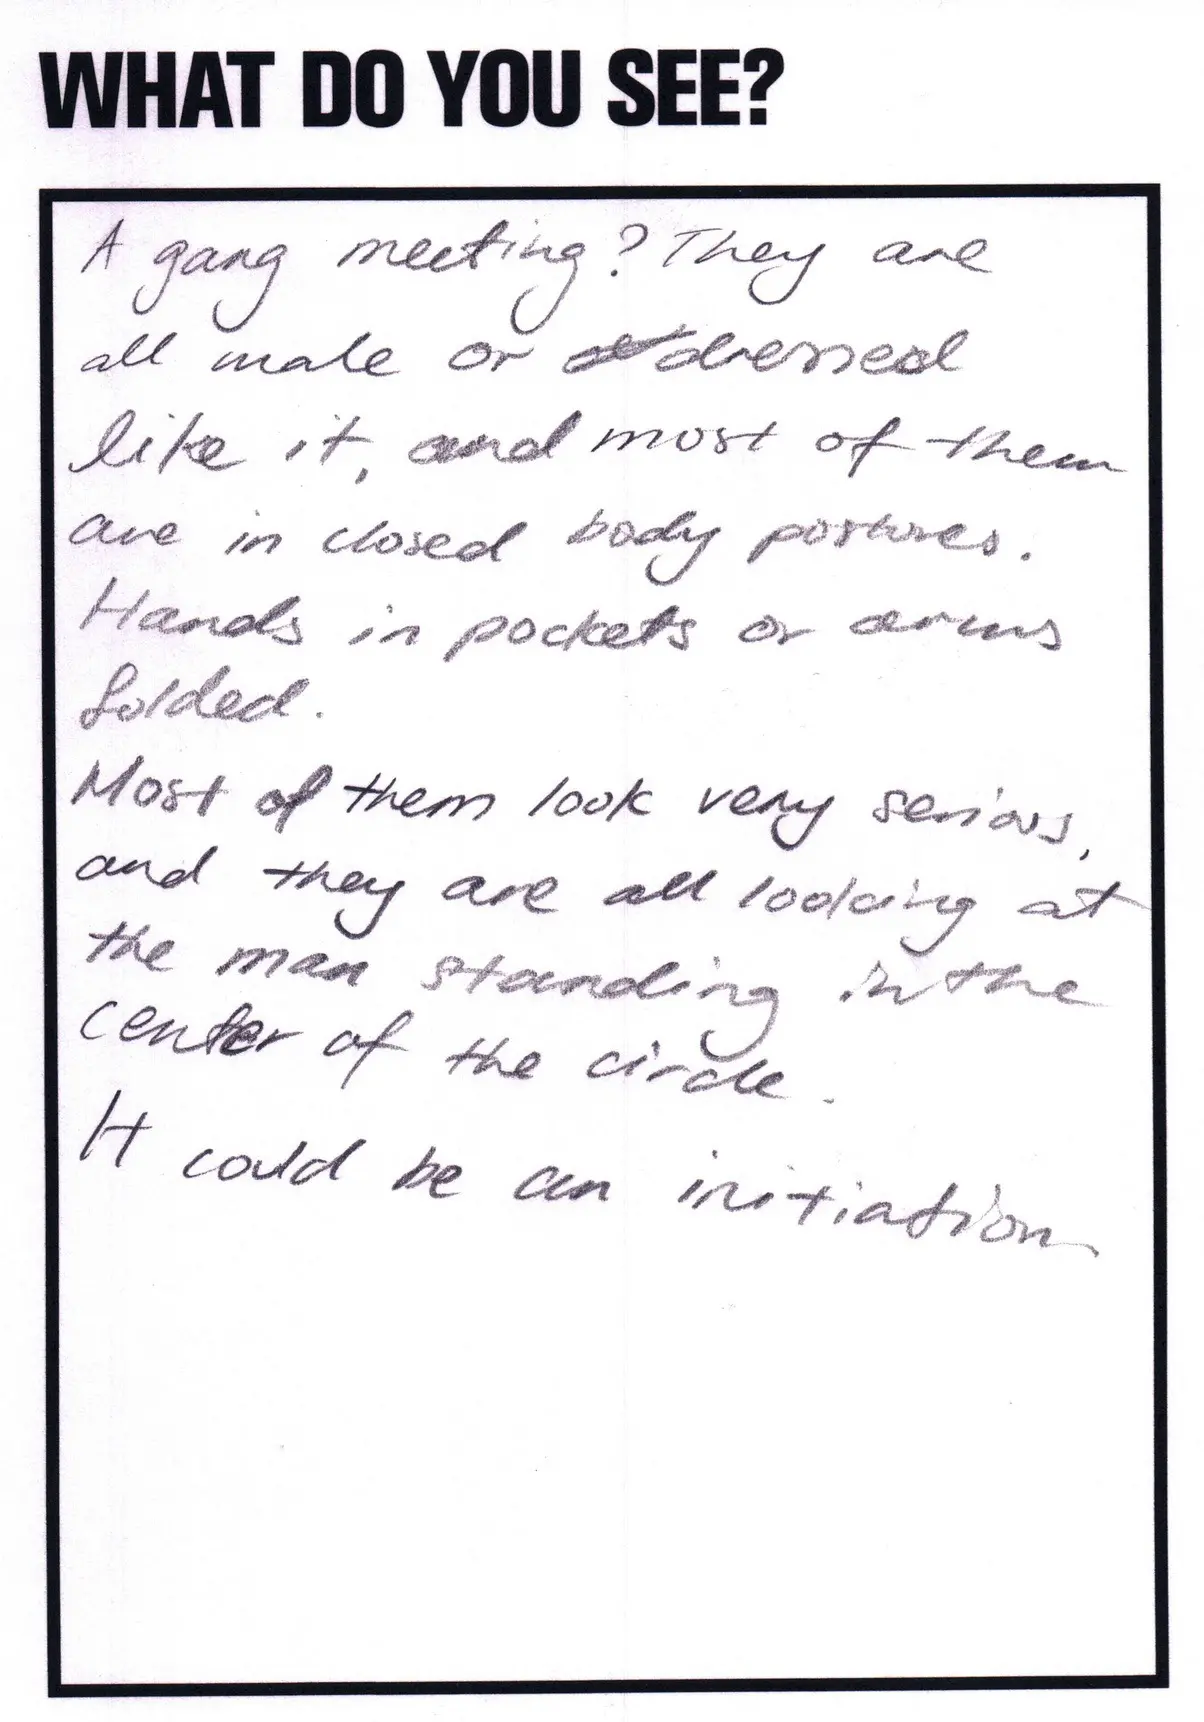 WHAT DO YOU SEE?
A gang meeting? They are
all male or dressed
like it, and most of them
are in closed body postures.
Hands in pockets or arms
folded.
Most of them look very serious,
and they are all looking at
the man standing in the
center of the circle.
It could be an initiation